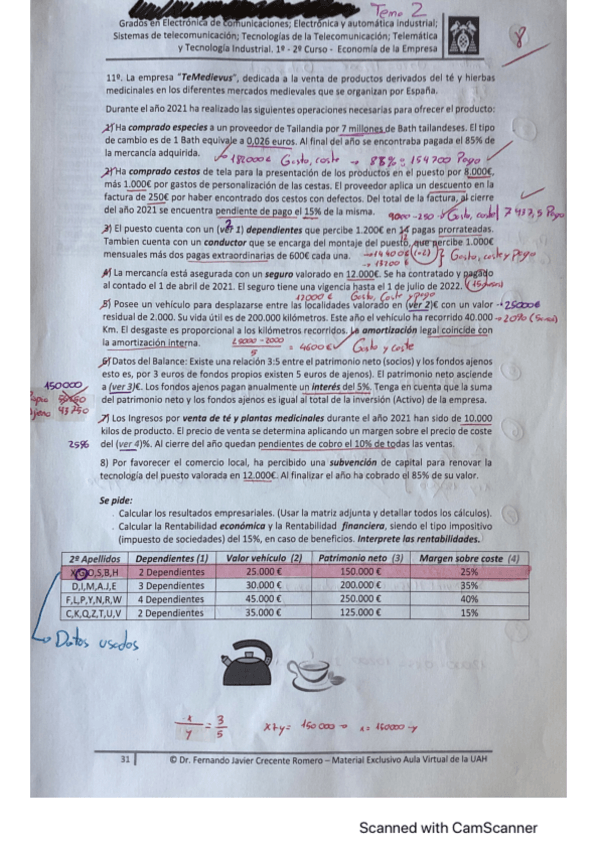 Tema 2
Grados en Electrónica de Comunicaciones; Electrónica y automática Industrial;
Sistemas de telecomunicación; Tecnologías de la Telecomunicación; Telemática
y Tecnología Industrial. 1º - 2º Curso - Economía de la Empresa
8
11º. La empresa "TeMedievus", dedicada a la venta de productos derivados del té y hierbas
medicinales en los diferentes mercados medievales que se organizan por España.
Durante el año 2021 ha realizado las siguientes operaciones necesarias para ofrecer el producto:
1) Ha comprado especies a un proveedor de Tailandia por 7 millones de Bath tailandeses. El tipo
de cambio es de 1 Bath equivale a 0,026 euros. Al final del año se encontraba pagada el 85% de
la mercancía adquirida.
182000€ Gasto, coste → 85% = 154700 Pago
2) Ha comprado cestos de tela para la presentación de los productos en el puesto por 8.000€,
más 1.000€ por gastos de personalización de las cestas. El proveedor aplica un descuento en la
factura de 250€ por haber encontrado dos cestos con defectos. Del total de la factura, al cierre
del año 2021 se encuentra pendiente de pago el 15% de la misma.
9000-250 → Gasto, coste 7437,5 Pago
2
3) El puesto cuenta con un (ver 1) dependientes que percibe 1.200€ en 14 pagas prorrateadas.
Tambien cuenta con un conductor que se encarga del montaje del puesto, que percibe 1.000€
mensuales más dos pagas extraordinarias de 600€ cada una.
→ 14400€ (·2) Gasto, coste y Pago
→ 13200€
4) La mercancía está asegurada con un seguro valorado en 12.000€. Se ha contratado y pagado
al contado el 1 de abril de 2021. El seguro tiene una vigencia hasta el 1 de julio de 2022. (15 meses)
12000€ Gasto, Coste y Pago
5) Posee un vehículo para desplazarse entre las localidades valorado en (ver 2)€ con un valor → 25000€
residual de 2.000. Su vida útil es de 200.000 kilómetros. Este año el vehículo ha recorrido 40.000 → 20% (5 años)
Km. El desgaste es proporcional a los kilómetros recorridos. La amortización legal coincide con
la amortización interna.
25000 - 2000
5
= 4600€ Gasto y coste
6) Datos del Balance: Existe una relación 3:5 entre el patrimonio neto (socios) y los fondos ajenos
esto es, por 3 euros de fondos propios existen 5 euros de ajenos). El patrimonio neto asciende
150000
a (ver 3)€. Los fondos ajenos pagan anualmente un interés del 5%. Tenga en cuenta que la suma
del patrimonio neto y los fondos ajenos es igual al total de la inversión (Activo) de la empresa.
93750
7) Los Ingresos por venta de té y plantas medicinales durante el año 2021 han sido de 10.000
kilos de producto. El precio de venta se determina aplicando un margen sobre el precio de coste
25%
del (ver 4)%. Al cierre del año quedan pendientes de cobro el 10% de todas las ventas.
8) Por favorecer el comercio local, ha percibido una subvención de capital para renovar la
tecnología del puesto valorada en 12.000€. Al finalizar el año ha cobrado el 85% de su valor.
Se pide:
. Calcular los resultados empresariales. (Usar la matriz adjunta y detallar todos los cálculos).
. Calcular la Rentabilidad económica y la Rentabilidad financiera, siendo el tipo impositivo
(impuesto de sociedades) del 15%, en caso de beneficios. Interprete las rentabilidades.
2º Apellidos Dependientes (1) Valor vehículo (2) Patrimonio neto (3) Margen sobre coste (4)
X,G,O,S,B,H 2 Dependientes 25.000 € 150.000 € 25%
D,I,M,A,J,E 3 Dependientes 30.000 € 200.000 € 35%
F,L,P,Y,N,R,W 4 Dependientes 45.000 € 250.000 € 40%
C,K,Q,Z,T,U,V 2 Dependientes 35.000 € 125.000 € 15%
Datos usados
x/y = 3/5 x+y = 150000 → x = 150000 - y
31 © Dr. Fernando Javier Crecente Romero – Material Exclusivo Aula Virtual de la UAH
Scanned with CamScanner